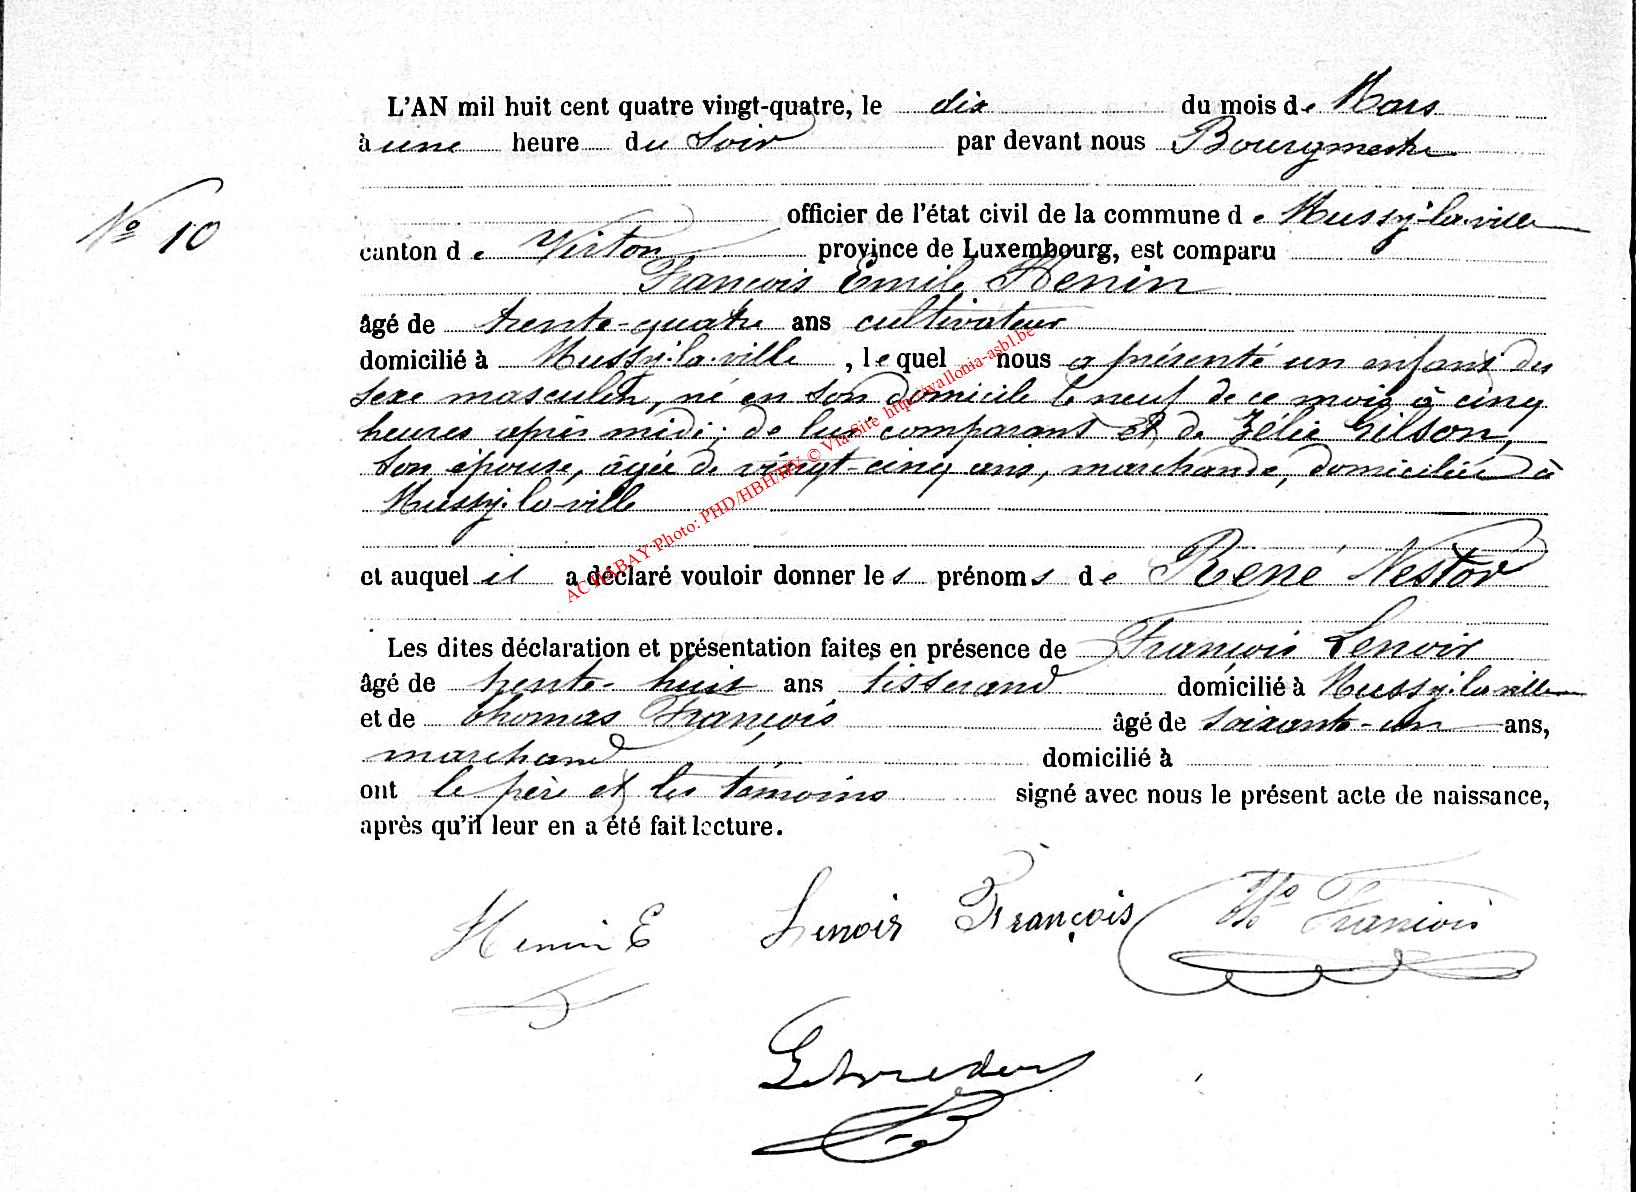 L'AN mil huit cent quatre vingt-quatre, le dix du mois de Mars
à une heure du Soir par devant nous Bourgmestre
officier de l'état civil de la commune de Mussy-la-ville
N° 10
canton de Virton province de Luxembourg, est comparu
François Emile Henin
âgé de trente-quatre ans cultivateur
domicilié à Mussy-la-ville, lequel nous a présenté un enfant du
sexe masculin, né en son domicile le neuf de ce mois à cinq
heures après midi, de lui comparant et de Zélie Gilson,
son épouse, âgée de vingt-cinq ans, marchande, domiciliée à
Mussy-la-ville
et auquel il a déclaré vouloir donner les prénoms de René Nestor
Les dites déclaration et présentation faites en présence de François Lenoir
âgé de trente-huit ans tisserand domicilié à Mussy-la-ville
et de Thomas François âgé de soixante-un ans,
marchand domicilié à
ont le père et les témoins signé avec nous le présent acte de naissance,
après qu'il leur en a été fait lecture.
Henin E Lenoir François Ths François
ACWABAY Photo: PHD/HBH/HY © Via Site http://wallonia-asbl.be